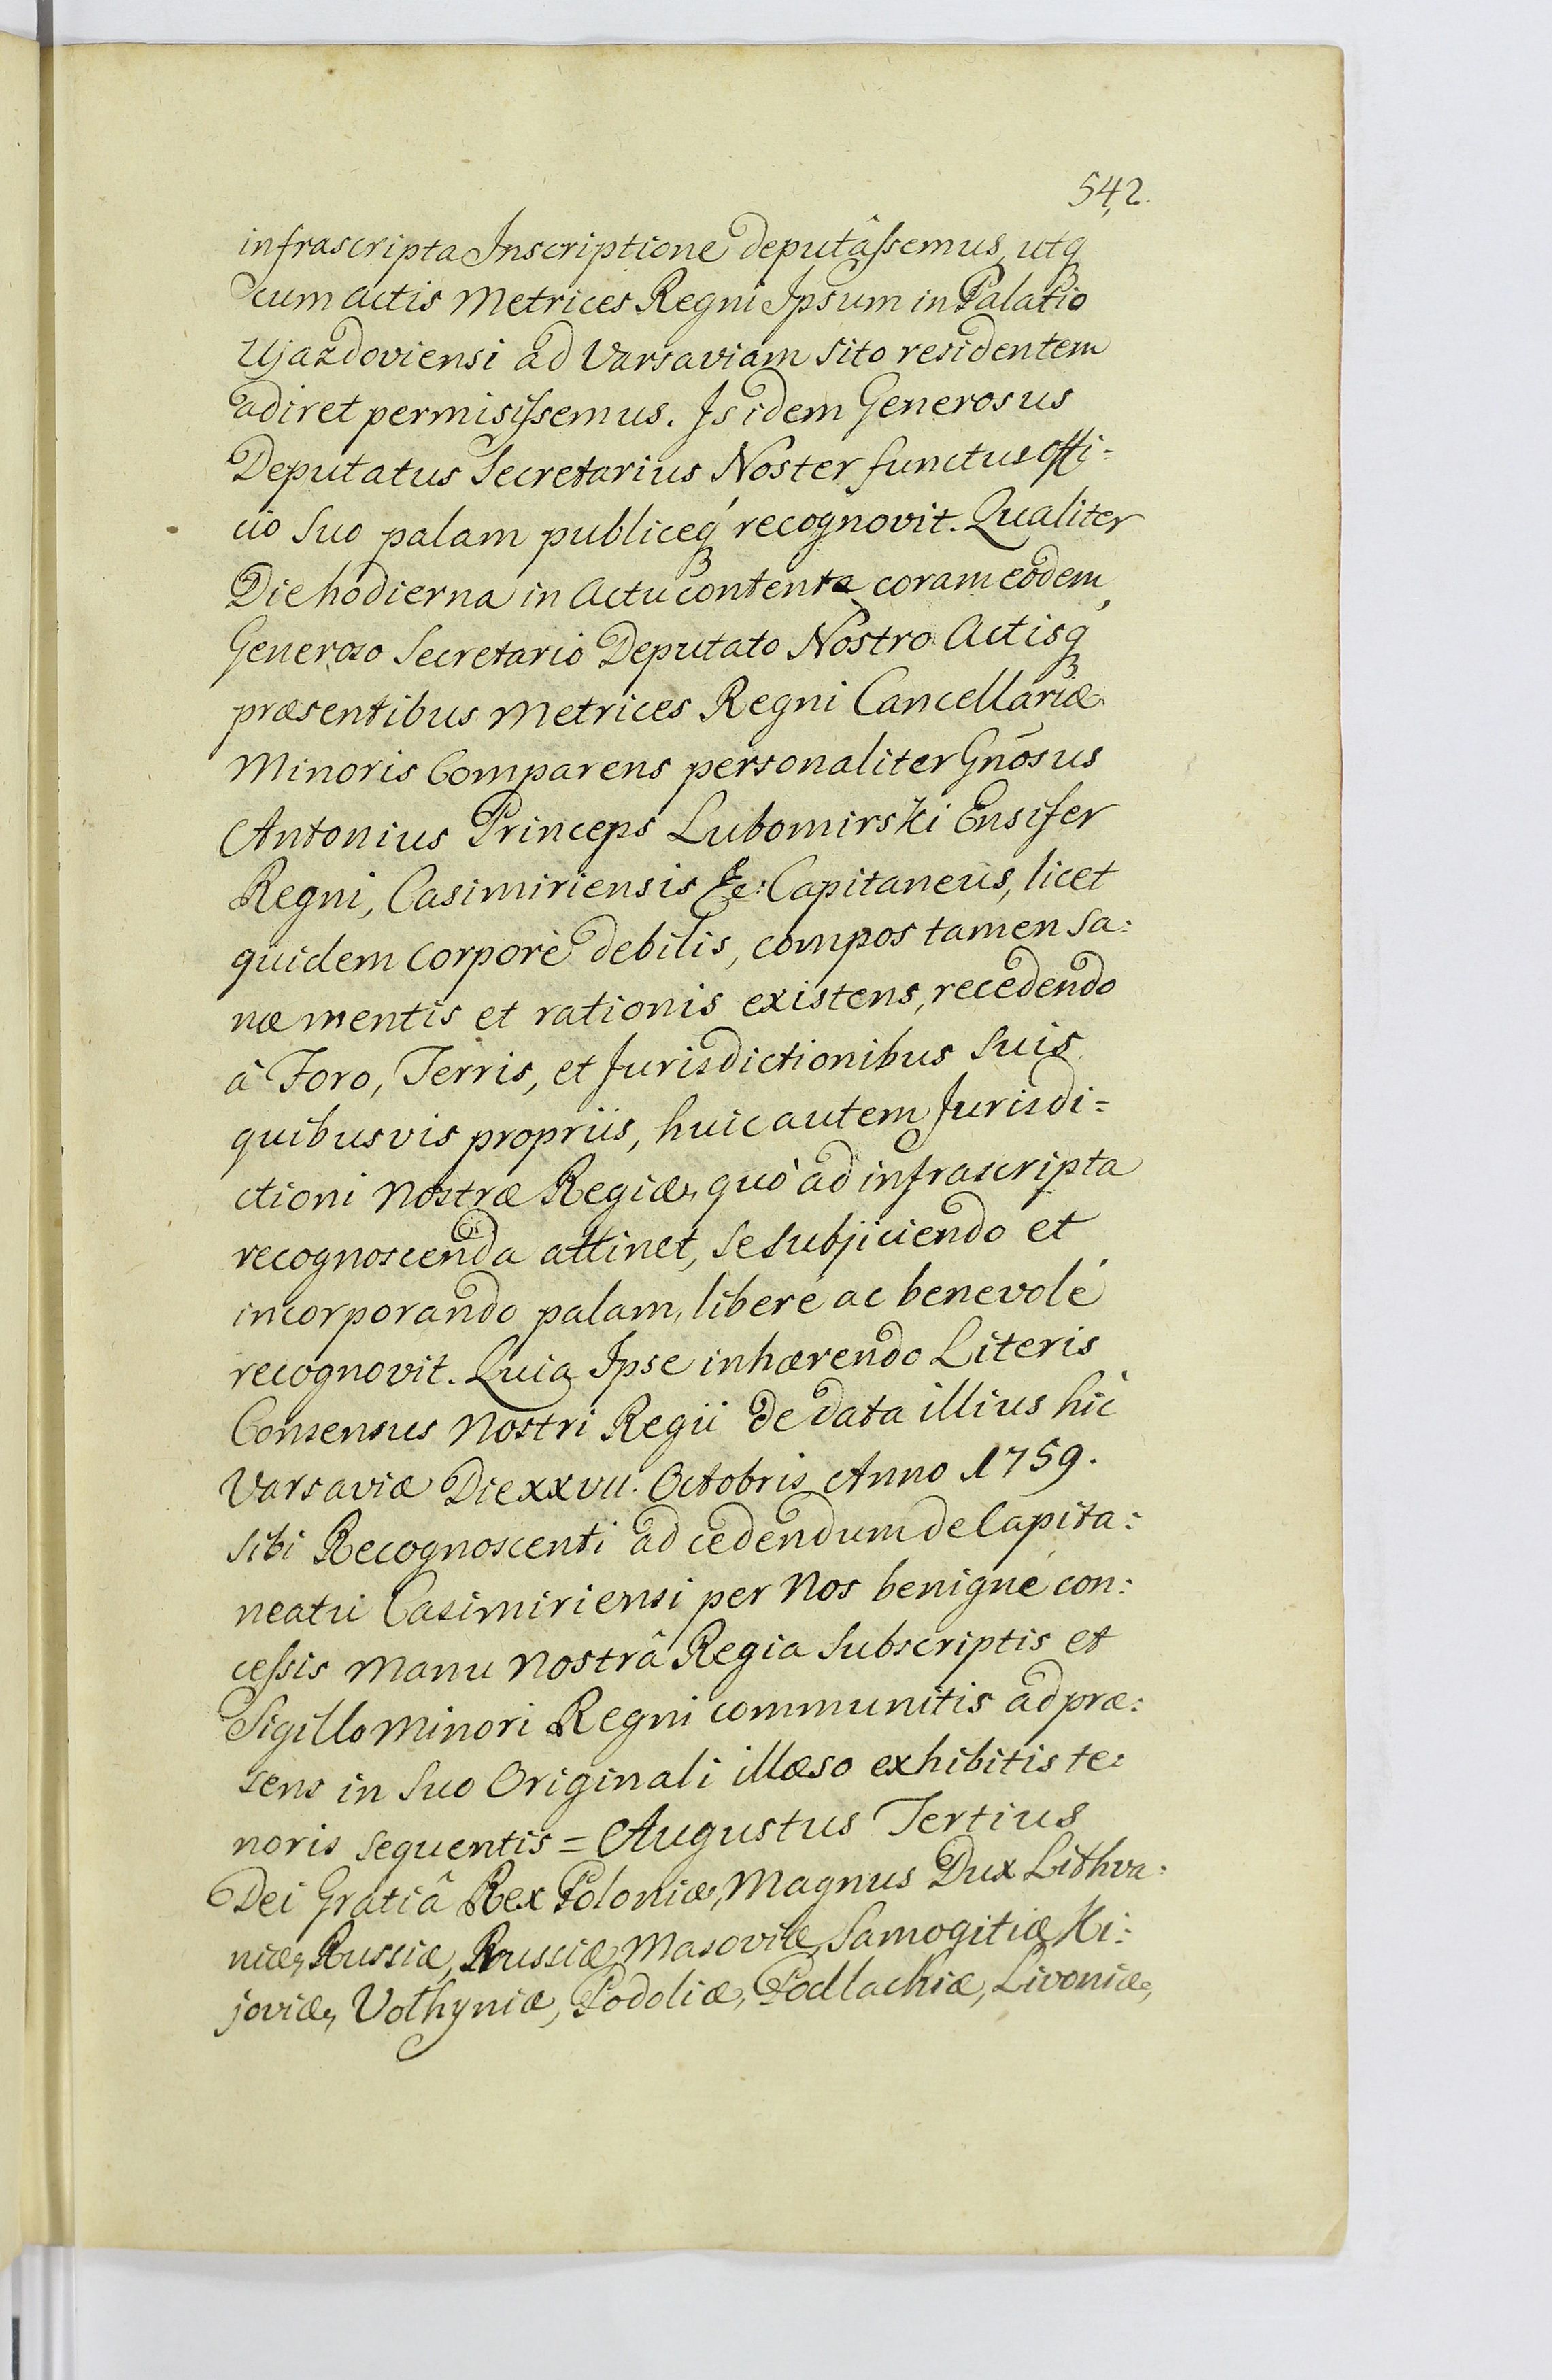 542.
infrascripta Inscriptione deputâssemus, utq
cum actis Metrices Regni Ipsum in Palatio
Ujazdoviensi ad Varsaviam sito residentem
adiret permisissemus. Is idem Generosus
Deputatus Secretarius Noster functus offi=
cio suo palam publiceq recognovit. Qualiter
Die hodierna in Actu contenta coram eodem
Generoso Secretario Deputato Nostro Actisq
præsentibus Metrices Regni Cancellariæ
Minoris Comparens personaliter Gnosus
Antonius Princeps Lubomirski Ensifer
Regni, Casimiriensis &c: Capitaneus, licet
quidem corporè debilis, compos tamen sa:
næ mentis et rationis existens, recedendo
à Foro, Terris, et Jurisdictionibus suis
quibusvis propriis, huic autem Jurisdi=
ctioni Nostræ Regiæ, quò ad infrascripta
recognoscenda attinet, se subjiciendo et
incorporando palam, liberé ac benevolé
recognovit. Quia Ipse inhærendo Literis
Consensus Nostri Regii de data illius hic
Varsaviæ Die XXVII. Octobris Anno 1759.
sibi Recognoscenti ad cedendum de Capita:
neatu Casimiriensi per Nos benigné con:
cessis Manu Nostrâ Regia subscriptis et
Sigillo Minori Regni communitis ad præ:
sens in suo Originali illæso exhibitis te:
noris sequentis = Augustus Tertius
Dei Gratiâ Rex Poloniæ, Magnus Dux Lithva:
niæ, Russiæ, Prussiæ, Masoviæ, Samogitiæ Ki:
joviæ, Volhyniæ, Podoliæ, Podlachiæ, Livoniæ,